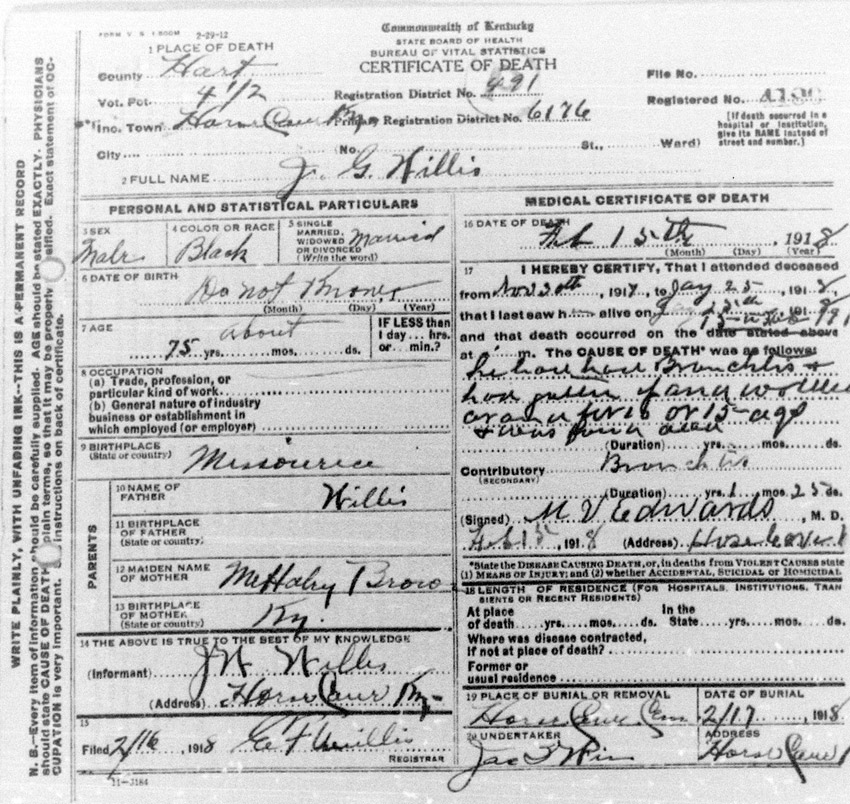 FORM V. S. 1 2-29-12
Commonwealth of Kentucky
STATE BOARD OF HEALTH
BUREAU OF VITAL STATISTICS
CERTIFICATE OF DEATH
1 PLACE OF DEATH
County Hart
Vot. Pct. 4 1/2
Inc. Town Horse Cave Ky
City
Registration District No. 491
Primary Registration District No. 6176
(No. St., Ward)
File No.
Registered No.
[If death occurred in a
hospital or institution,
give its NAME instead of
street and number.]
2 FULL NAME J. G. Willis
PERSONAL AND STATISTICAL PARTICULARS
3 SEX
Male
4 COLOR OR RACE
Black
5 SINGLE
MARRIED,
WIDOWED
OR DIVORCED
(Write the word)
Married
6 DATE OF BIRTH
Do not Know
(Month) (Day) (Year)
7 AGE
about
75 yrs. mos. ds.
IF LESS than
1 day... hrs.
or... min.?
8 OCCUPATION
(a) Trade, profession, or
particular kind of work
(b) General nature of industry
business or establishment in
which employed (or employer)
9 BIRTHPLACE
(State or country)
Missourie
PARENTS
10 NAME OF
FATHER
Willis
11 BIRTHPLACE
OF FATHER
(State or country)
12 MAIDEN NAME
OF MOTHER
13 BIRTHPLACE
OF MOTHER
(State or country)
Ky.
14 THE ABOVE IS TRUE TO THE BEST OF MY KNOWLEDGE
(Informant) J W Willis
(Address) Horse Cave Ky-
15
Filed 2/16, 1918
REGISTRAR
11-3184
MEDICAL CERTIFICATE OF DEATH
16 DATE OF DEATH
Feb 15th, 1918
(Month) (Day) (Year)
17
I HEREBY CERTIFY, That I attended deceased
from Nov 30th, 1917, to Jay 25, 1918,
that I last saw h alive on
and that death occurred on the date stated above
at m. The CAUSE OF DEATH* was as follows:
he had had Bronchitis +
had
15
+ was found dead
(Duration) yrs. mos. ds.
Contributory Bronchitis
(SECONDARY)
(Duration) yrs. 1 mos. 25 ds.
(Signed) M V Edwards, M. D.
Feb 15, 1918 (Address) Horse Cave
*State the DISEASE CAUSING DEATH, or, in deaths from VIOLENT CAUSES state
(1) MEANS OF INJURY; and (2) whether ACCIDENTAL, SUICIDAL or HOMICIDAL
18 LENGTH OF RESIDENCE (FOR HOSPITALS, INSTITUTIONS, TRAN
SIENTS OR RECENT RESIDENTS)
At place In the
of death yrs. mos. ds. State yrs. mos. ds.
Where was disease contracted,
if not at place of death?
Former or
usual residence
19 PLACE OF BURIAL OR REMOVAL
Horse Cave Cem
DATE OF BURIAL
2/17 1918
20 UNDERTAKER
ADDRESS
Horse Cave
WRITE PLAINLY, WITH UNFADING INK--THIS IS A PERMANENT RECORD
N. B.--Every item of information should be carefully supplied. AGE should be stated EXACTLY. PHYSICIANS
should state CAUSE OF DEATH in plain terms, so that it may be properly classified. Exact statement of OC-
CUPATION is very important. instructions on back of certificate.